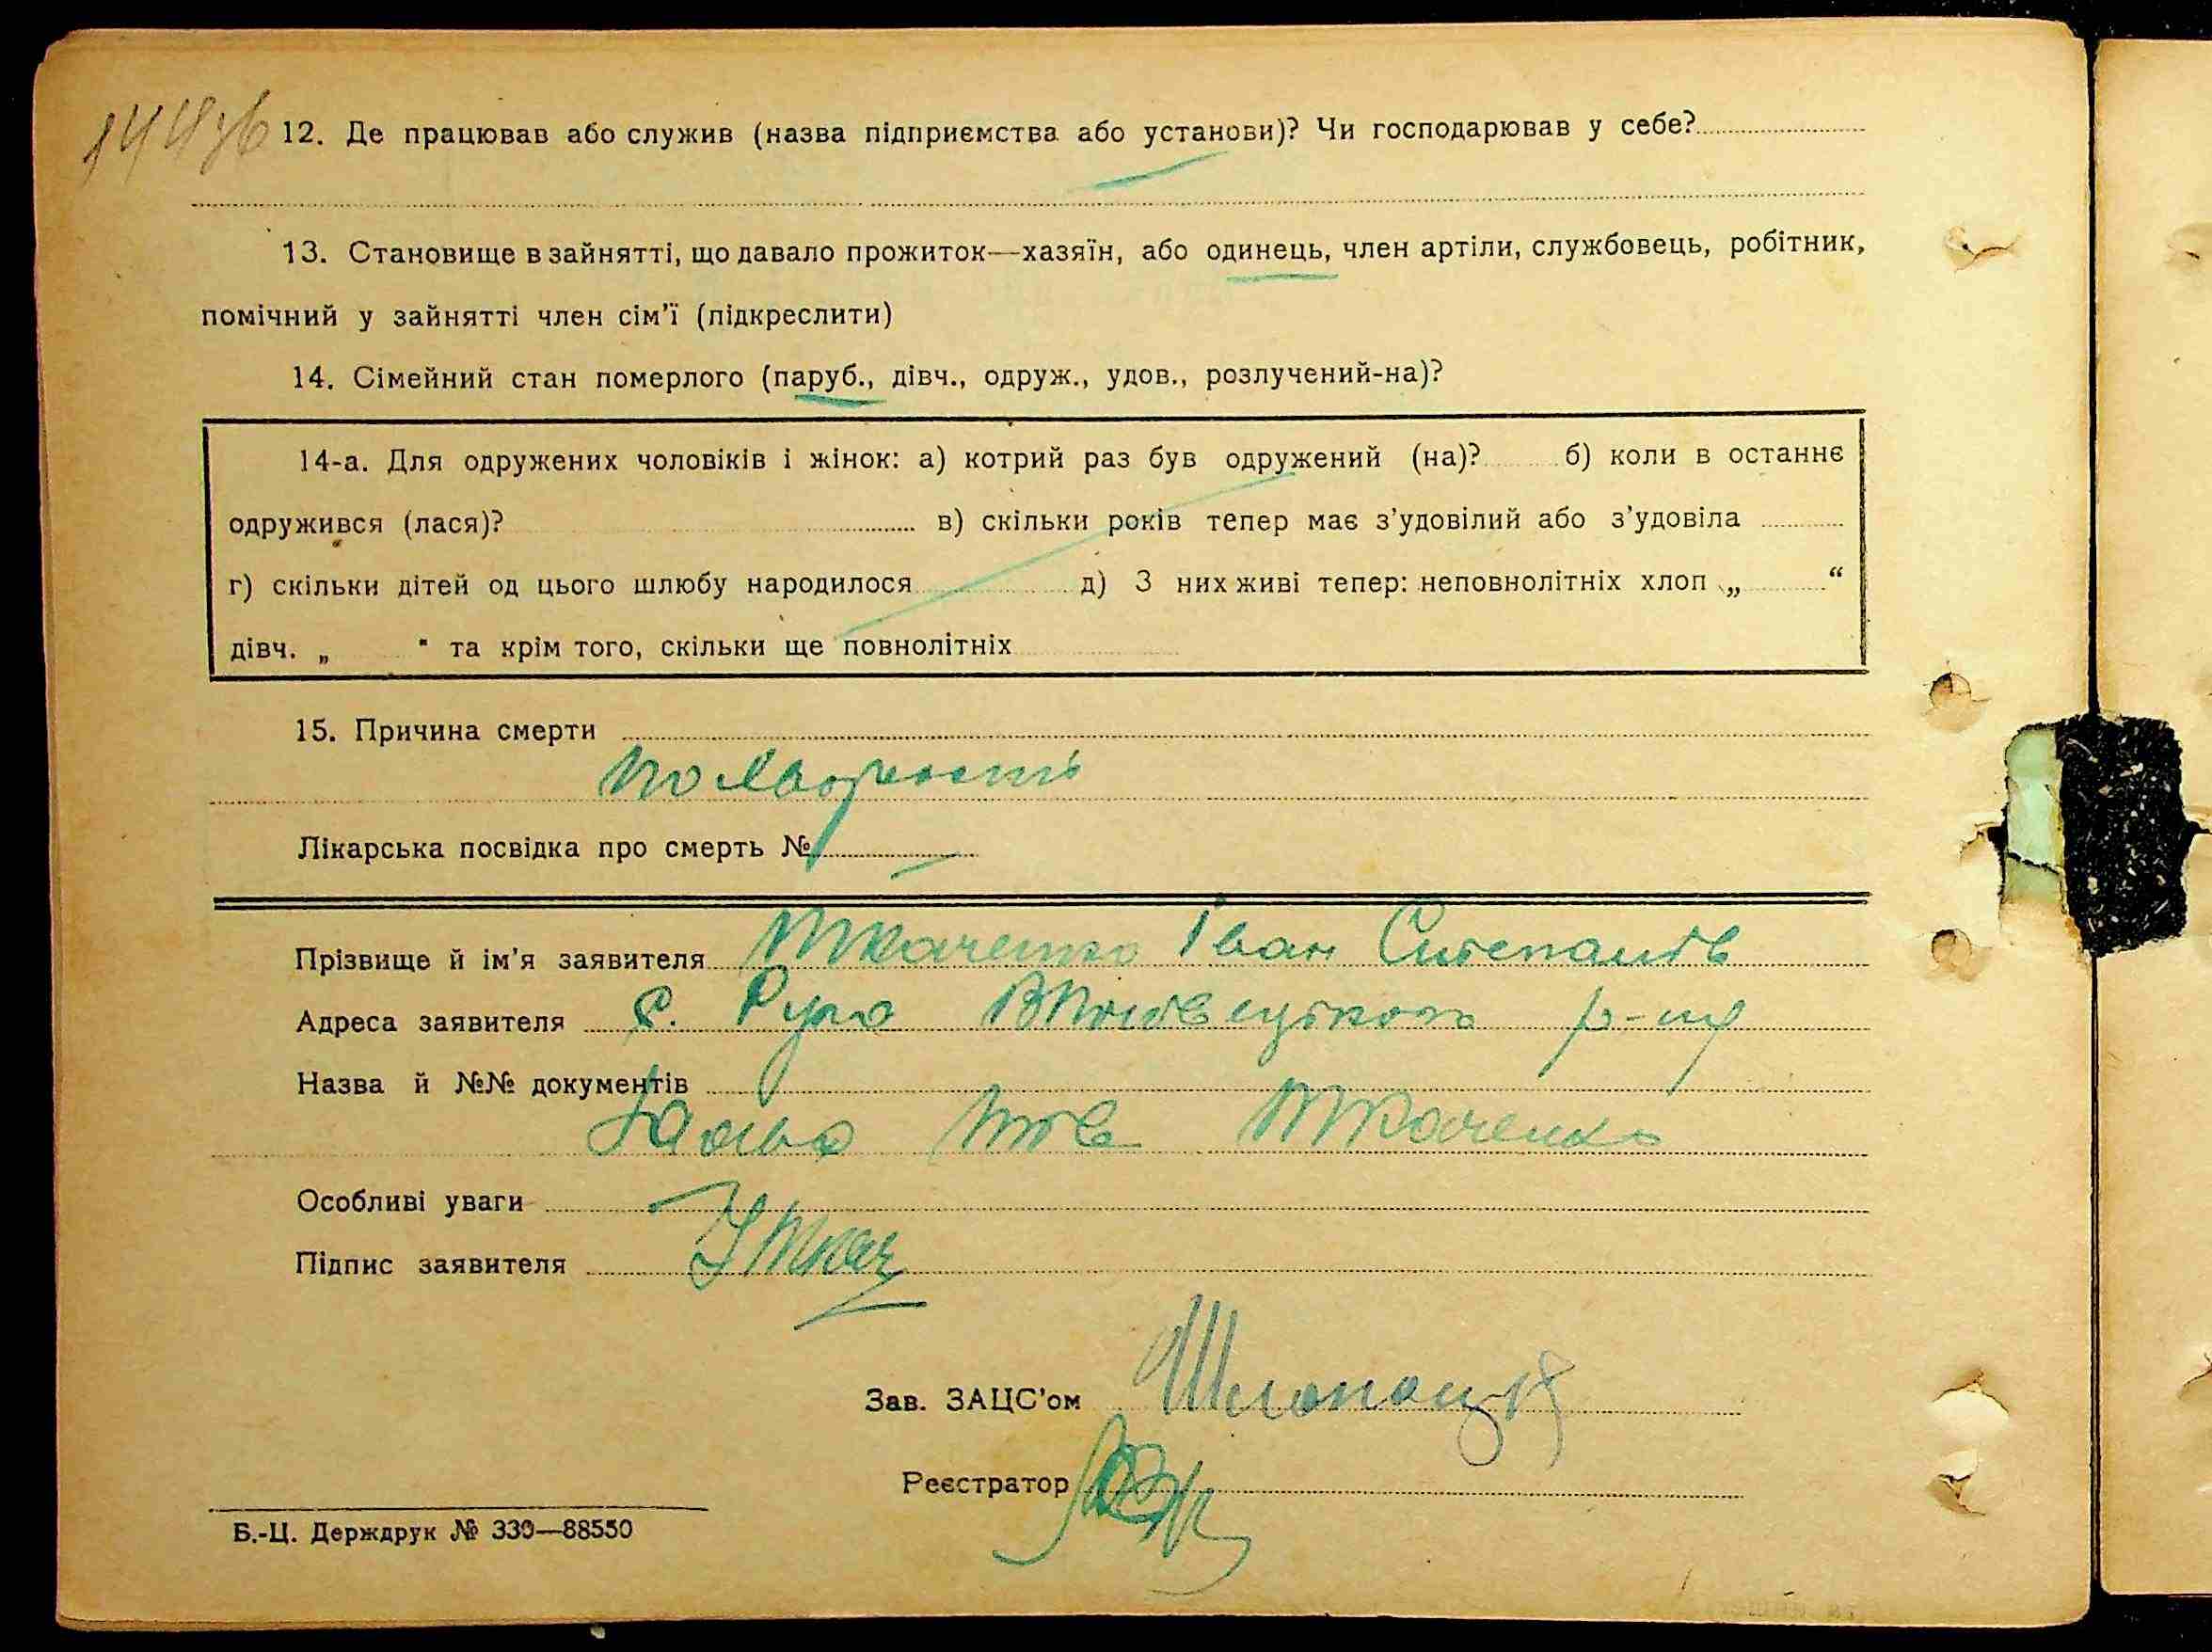 12. Де працював або служив (назва підприємства або установи)? Чи господарював у себе?
13. Становище в зайнятті, що давало прожиток—хазяїн, або одинець, член артіли, службовець, робітник,
помічний у зайнятті член сім'ї (підкреслити)
14. Сімейний стан померлого (паруб., дівч., одруж., удов., розлучений-на)?
14-а. Для одружених чоловіків і жінок: а) котрий раз був одружений (на)? б) коли в останнє
одружився (лася)? в) скільки років тепер має з'удовілий або з'удовіла
г) скільки дітей од цього шлюбу народилося д) З них живі тепер: неповнолітніх хлоп „ “
дівч. „ " та крім того, скільки ще повнолітніх
15. Причина смерти
Лікарська посвідка про смерть №
Прізвище й ім'я заявителя Ткаченко Іван Степанів
Адреса заявителя с. Руда р-ну
Назва й №№ документів
Ткаченко
Особливі уваги
Підпис заявителя ІТкач
Зав. ЗАЦС'ом
Реєстратор
Б.-Ц. Держдрук № 339—88550